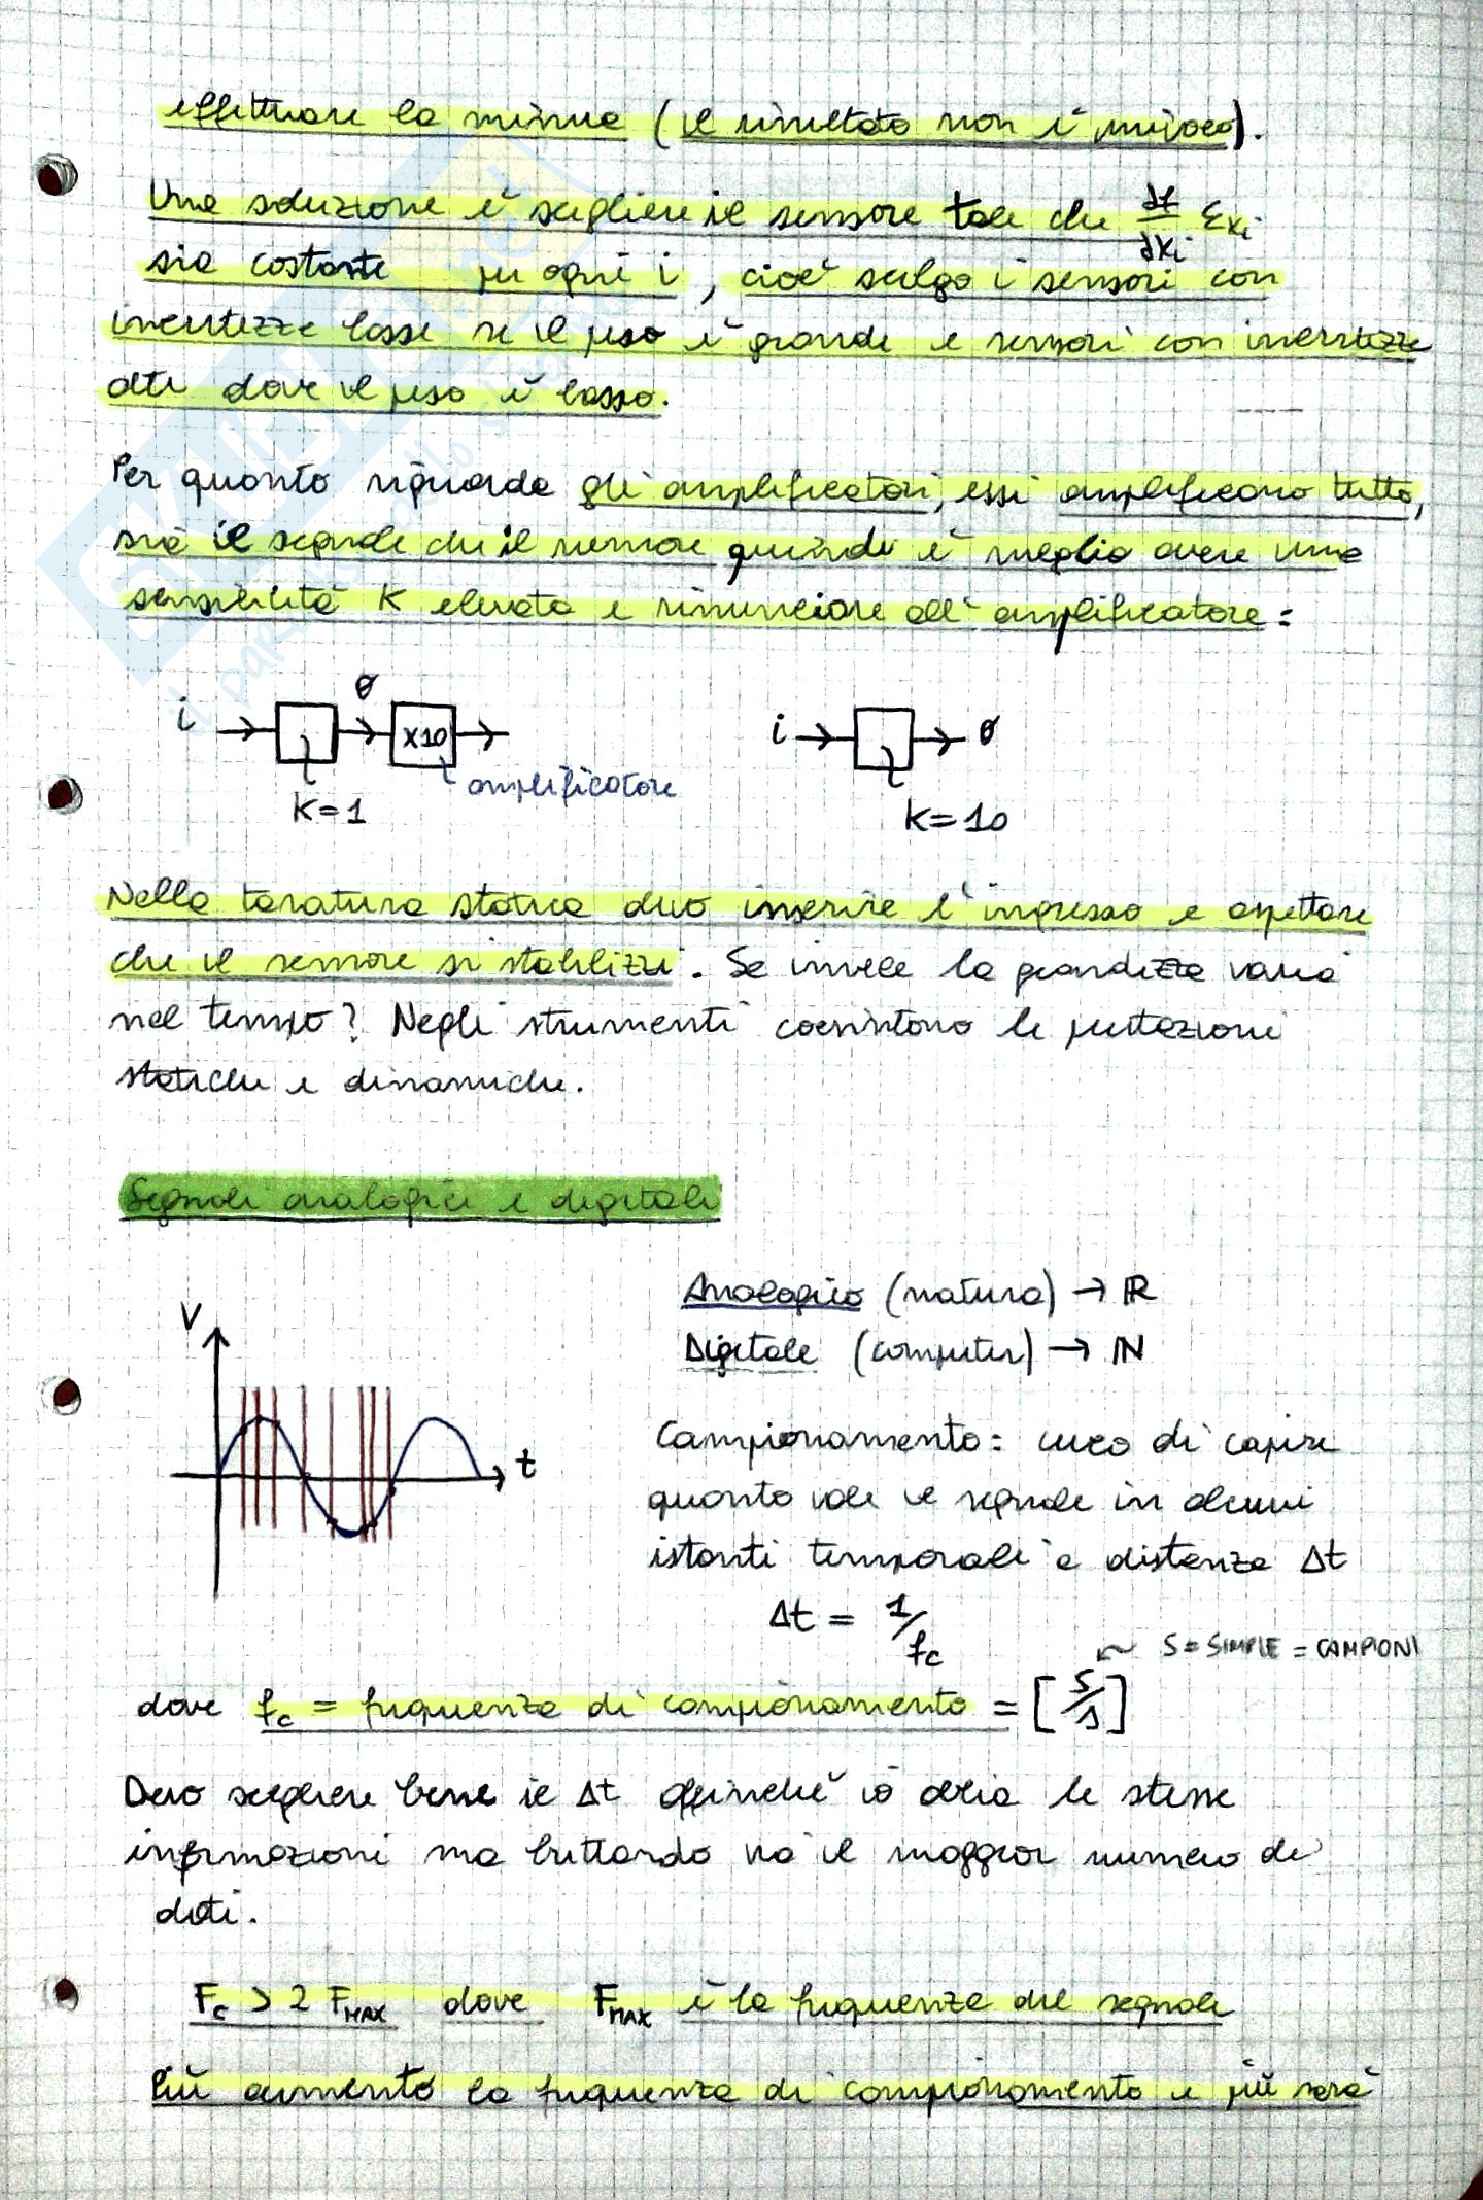 effettuare la misura (il risultato non è univoco).
Una soluzione è scegliere il sensore tale che ∂f/∂xi εxi
sia costante per ogni i, cioè scelgo i sensori con
incertezze basse se il peso è grande e sensori con incertezze
alte dove il peso è basso.
Per quanto riguarda gli amplificatori, essi amplificano tutto,
sia il segnale che il rumore quindi è meglio avere una
sensibilità K elevata e rinunciare all'amplificatore:
i
θ
X10
i
θ
amplificatore
K=1
K=10
Nella taratura statica devo inserire l'ingresso e aspettare
che il sensore si stabilizzi. Se invece la grandezza varia
nel tempo? Negli strumenti coesistono le prestazioni
statiche e dinamiche.
Segnali analogici e digitali
Analogico (natura) → ℝ
Digitale (computer) → ℕ
V
t
Campionamento: cerco di capire
quanto vale il segnale in alcuni
istanti temporali a distanza Δt
Δt = 1/fc
S = SIMPLE = CAMPIONI
dove fc = frequenza di campionamento = [S/s]
Devo scegliere bene il Δt affinché io abbia le stesse
informazioni ma buttando via il maggior numero di
dati.
Fc > 2 FMAX dove FMAX è la frequenza del segnale
Più aumento la frequenza di campionamento e più sarà